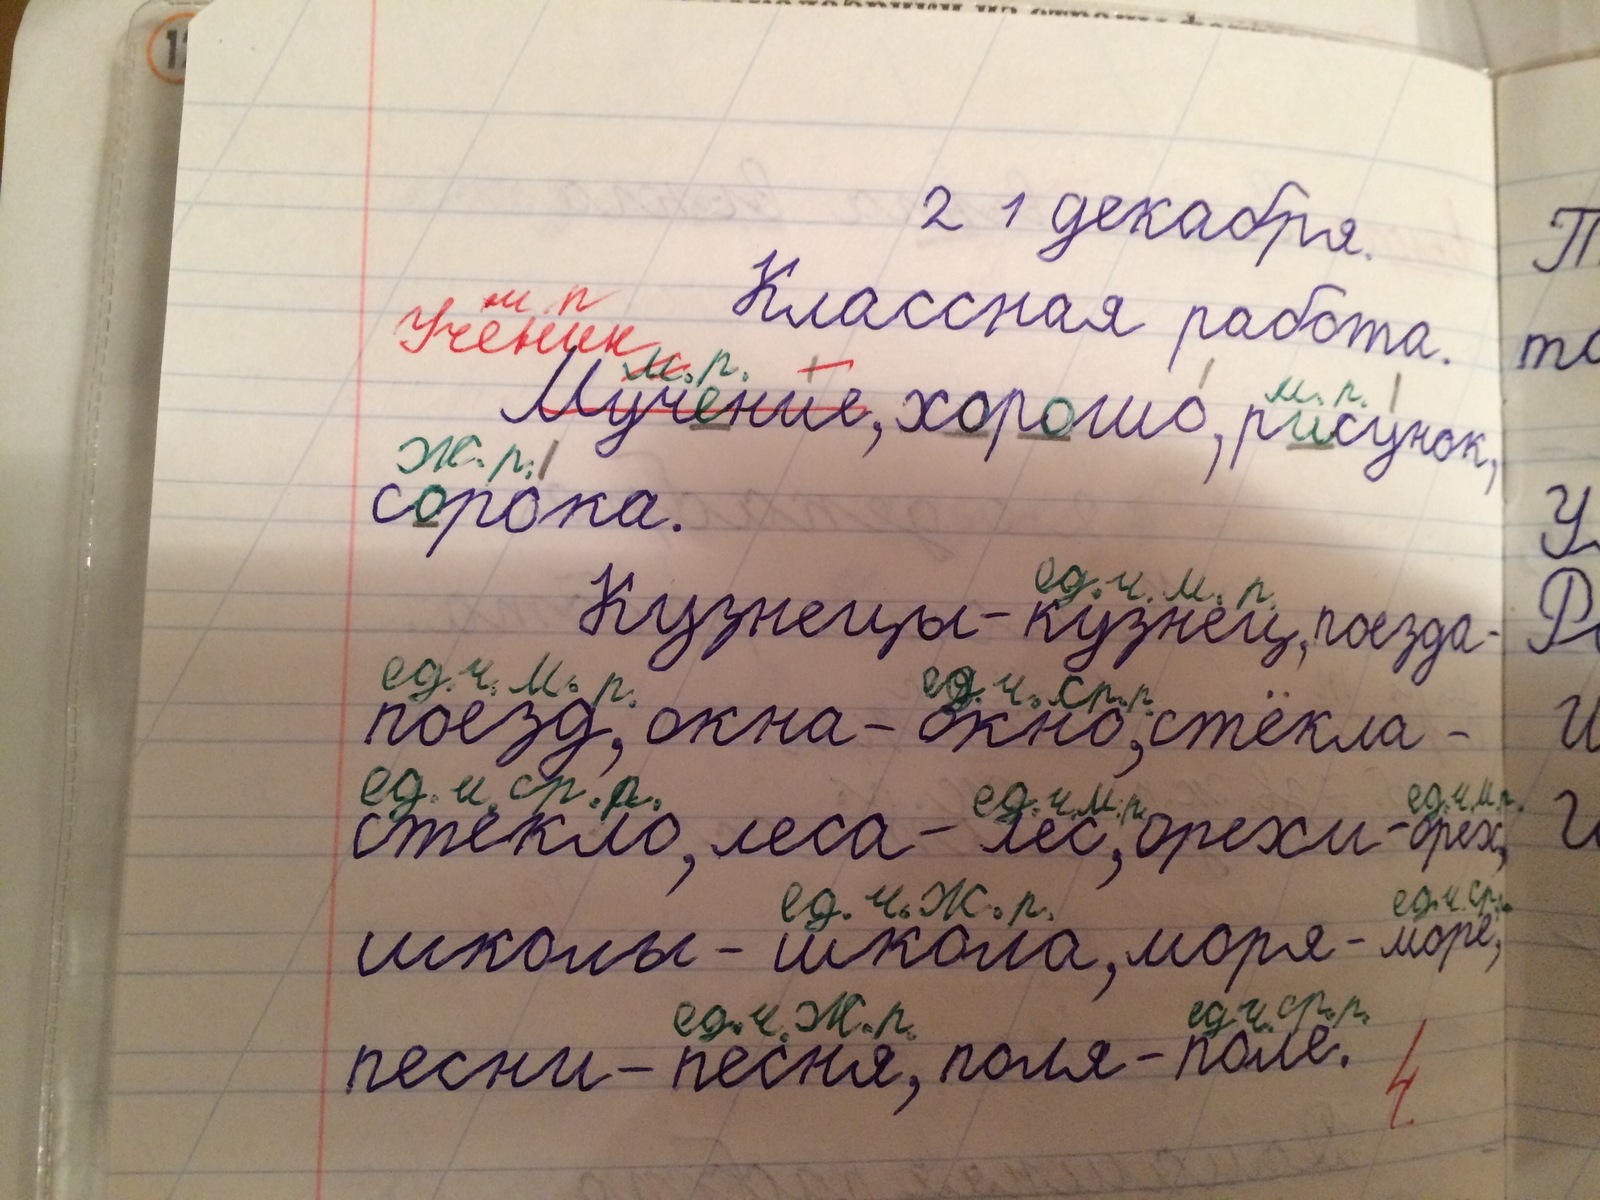 21 декабря.
Классная работа.
м. п
Ученик
м. р.
м. р.
Мучение, хорошо, рисунок,
Ж. р.
сорока.
ед. ч. м. р.
Кузнецы - кузнец, поезда -
ед. ч. м. р.
ед. ч. ср. р.
поезд, окна - окно, стёкла -
ед. ч. ср. р.
ед. ч. м. р.
ед. ч. м. р.
стекло, леса - лес, орехи - орех,
ед. ч. Ж. р.
ед. ч. ср.
школы - школа, моря - море,
ед. ч. Ж. р.
ед. ч. ср. р.
песни - песня, поля - поле.
4.